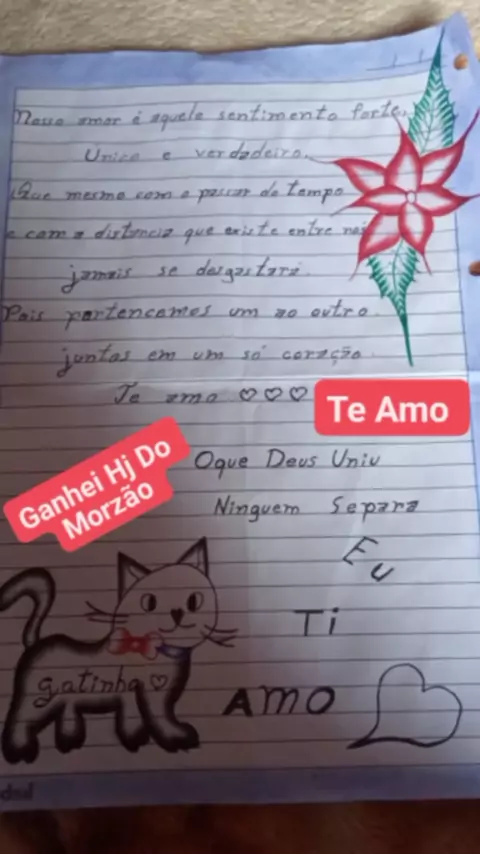 Nosso amor é aquele sentimento forte,
Unico e verdadeiro.
Que mesmo com o passar do tempo
e com a distancia que existe entre nós
jamais se desgastará.
Pois pertencemos um ao outro.
juntos em um só coração.
Te amo ♡♡♡
Te Amo
Ganhei Hj Do
Morzão
Oque Deus Uniu
Ninguem Separa
Eu
Ti
Amo
gatinha♡